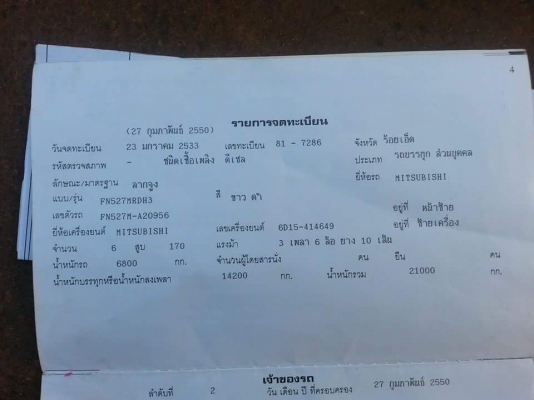 4
(27 กุมภาพันธ์ 2550) รายการจดทะเบียน
วันจดทะเบียน 23 มกราคม 2533 เลขทะเบียน 81 - 7286 จังหวัด ร้อยเอ็ด
รหัสตรวจสภาพ - ชนิดเชื้อเพลิง ดีเซล ประเภท รถบรรทุก ส่วนบุคคล
ลักษณะ/มาตรฐาน ลากจูง ยี่ห้อรถ MITSUBISHI
แบบ/รุ่น FN527MRDH3 สี ขาว ดำ
เลขตัวรถ FN527M-A20956 อยู่ที่ หน้าซ้าย
ยี่ห้อเครื่องยนต์ MITSUBISHI เลขเครื่องยนต์ 6D15-414649 อยู่ที่ ซ้ายเครื่อง
จำนวน 6 สูบ 170 แรงม้า 3 เพลา 6 ล้อ ยาง 10 เส้น
น้ำหนักรถ 6800 กก. จำนวนผู้โดยสารนั่ง คน ยืน คน
น้ำหนักบรรทุกหรือน้ำหนักลงเพลา 14200 กก. น้ำหนักรวม 21000 กก.
เจ้าของรถ
ลำดับที่ 2 วัน เดือน ปี ที่ครอบครอง 27 กุมภาพันธ์ 2550